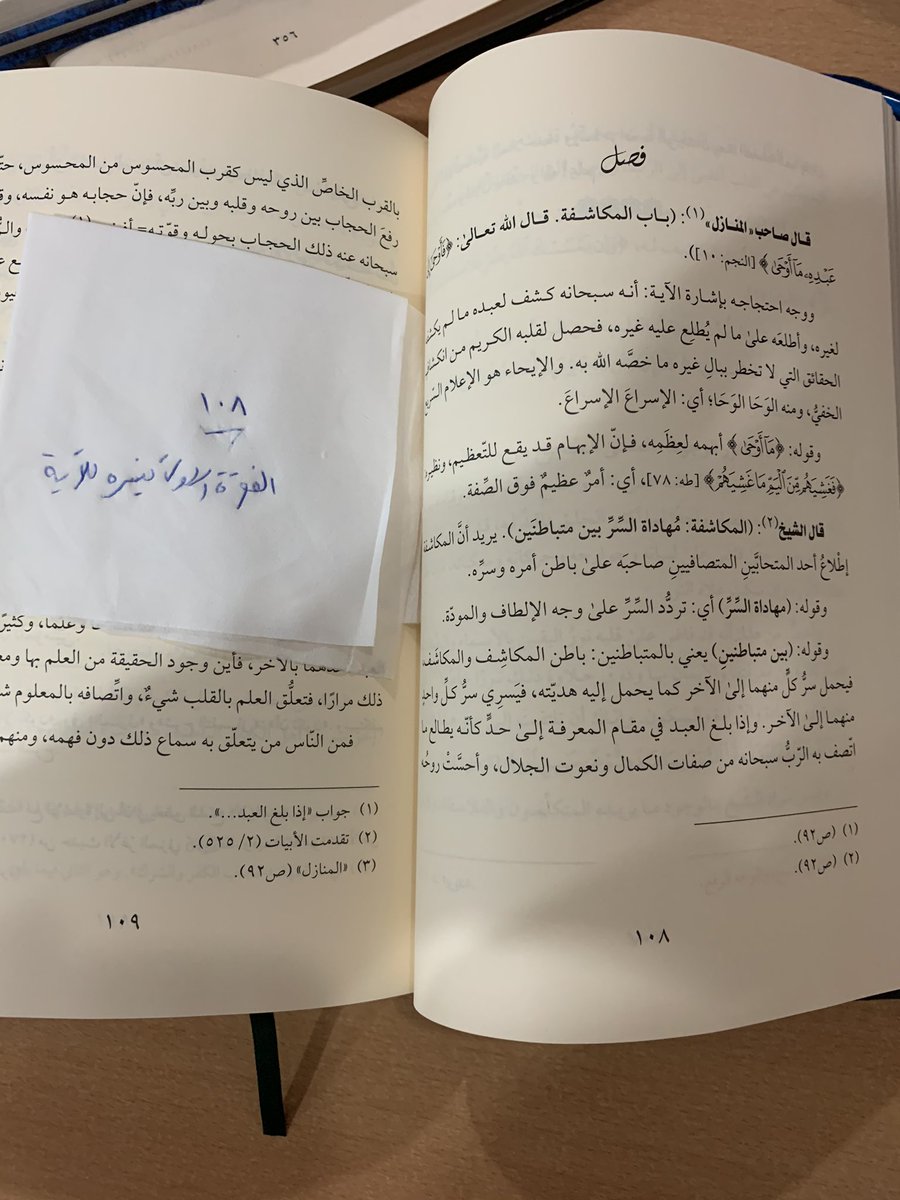 ٣٥٦
فصل
قال صاحب «المنازل»(١): (باب المكاشفة. قال الله تعالى: ﴿فَأَوْحَىٰٓ
عَبْدِهِۦ مَآ أَوْحَىٰ﴾ [النجم: ١٠]).
ووجه احتجاجه بإشارة الآية: أنه سبحانه كشف لعبده ما لم يكشف
لغيره، وأطلعَه علىٰ ما لم يُطلِع عليه غيره، فحصل لقلبه الكريم من انكشاف
الحقائق التي لا تخطر ببالِ غيره ما خصَّه الله به. والإيحاء هو الإعلام السّريع
الخفيُّ، ومنه الوَحَا الوَحَا؛ أي: الإسراعَ الإسراعَ.
وقوله: ﴿مَآ أَوْحَىٰ﴾ أبهمه لعِظَمِه، فإنّ الإبهام قد يقع للتّعظيم، ونظيره
﴿فَغَشِيَهُم مِّنَ ٱلْيَمِّ مَا غَشِيَهُمْ﴾ [طه: ٧٨]، أي: أمرٌ عظيمٌ فوق الصِّفة.
قال الشيخ(٢): (المكاشفة: مُهاداة السِّرِّ بين متباطنَين). يريد أنَّ المكاشفة
إطْلاعُ أحد المتحابَّينِ المتصافيينِ صاحبَه علىٰ باطن أمره وسرِّه.
وقوله: (مهاداة السِّرِّ) أي: تردُّد السِّرِّ علىٰ وجه الإلطاف والمودّة.
وقوله: (بين متباطنينِ) يعني بالمتباطنين: باطن المكاشِف والمكاشَف
فيحمل سرُّ كلٍّ منهما إلىٰ الآخر كما يحمل إليه هديّته، فيَسرِي سرُّ كلِّ واحدٍ
منهما إلىٰ الآخر. وإذا بلغ العبد في مقام المعرفة إلىٰ حدٍّ كأنّه يطالع ما
اتّصف به الرّبُّ سبحانه من صفات الكمال ونعوت الجلال، وأحسَّتْ روحُه
(١) (ص٩٢).
(٢) (ص٩٢).
١٠٨
بالقرب الخاصِّ الذي ليس كقرب المحسوس من المحسوس، حتّ
رفعَ الحجاب بين روحه وقلبه وبين ربِّه، فإنّ حجابه هو نفسه، وق
سبحانه عنه ذلك الحجاب بحوله وقوّته=
١٠٨
الفقرة الأولى تفسيره للآية
وعلما، وكثيرًا
بالآخر، فأين وجود الحقيقة من العلم بها
ذلك مرارًا، فتعلُّق العلم بالقلب شيءٌ، واتِّصافه بالمعلوم
فمن النّاس من يتعلّق به سماع ذلك دون فهمه، ومنهم
(١) جواب «إذا بلغ العبد...».
(٢) تقدمت الأبيات (٢/ ٥٢٥).
(٣) «المنازل» (ص٩٢).
١٠٩